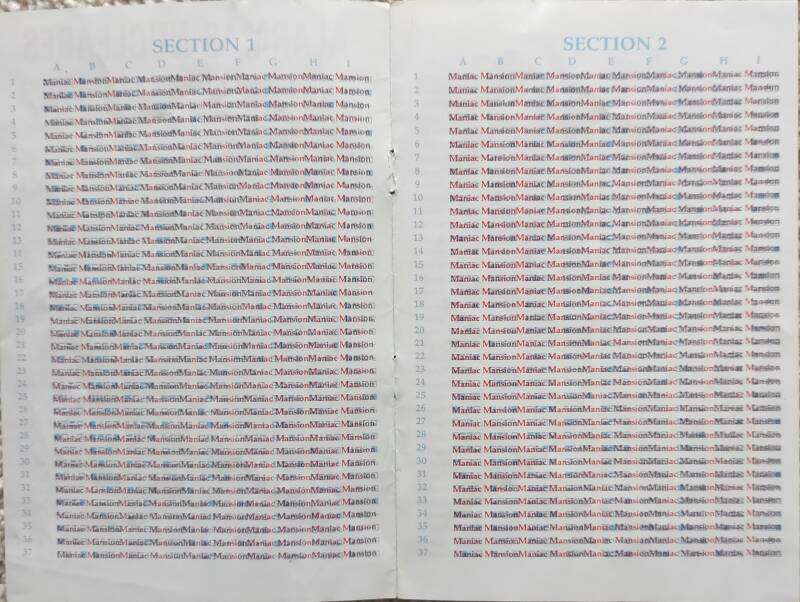 SECTION 1
A B C D E F G H I
1 Maniac MansionManiac MansionManiac MansionManiac MansionManiac Mansion
2 Maniac MansionManiac MansionManiac MansionManiac MansionManiac Mansion
3 Maniac MansionManiac MansionManiac MansionManiac MansionManiac Mansion
4 Maniac MansionManiac MansionManiac MansionManiac MansionManiac Mansion
5 Maniac MansionManiac MansionManiac MansionManiac MansionManiac Mansion
6 Maniac MansionManiac MansionManiac MansionManiac MansionManiac Mansion
7 Maniac MansionManiac MansionManiac MansionManiac MansionManiac Mansion
8 Maniac MansionManiac MansionManiac MansionManiac MansionManiac Mansion
9 Maniac MansionManiac MansionManiac MansionManiac MansionManiac Mansion
10 Maniac MansionManiac MansionManiac MansionManiac MansionManiac Mansion
11 Maniac MansionManiac MansionManiac MansionManiac MansionManiac Mansion
12 Maniac MansionManiac MansionManiac MansionManiac MansionManiac Mansion
13 Maniac MansionManiac MansionManiac MansionManiac MansionManiac Mansion
14 Maniac MansionManiac MansionManiac MansionManiac MansionManiac Mansion
15 Maniac MansionManiac MansionManiac MansionManiac MansionManiac Mansion
16 Maniac MansionManiac MansionManiac MansionManiac MansionManiac Mansion
17 Maniac MansionManiac MansionManiac MansionManiac MansionManiac Mansion
18 Maniac MansionManiac MansionManiac MansionManiac MansionManiac Mansion
19 Maniac MansionManiac MansionManiac MansionManiac MansionManiac Mansion
20 Maniac MansionManiac MansionManiac MansionManiac MansionManiac Mansion
21 Maniac MansionManiac MansionManiac MansionManiac MansionManiac Mansion
22 Maniac MansionManiac MansionManiac MansionManiac MansionManiac Mansion
23 Maniac MansionManiac MansionManiac MansionManiac MansionManiac Mansion
24 Maniac MansionManiac MansionManiac MansionManiac MansionManiac Mansion
25 Maniac MansionManiac MansionManiac MansionManiac MansionManiac Mansion
26 Maniac MansionManiac MansionManiac MansionManiac MansionManiac Mansion
27 Maniac MansionManiac MansionManiac MansionManiac MansionManiac Mansion
28 Maniac MansionManiac MansionManiac MansionManiac MansionManiac Mansion
29 Maniac MansionManiac MansionManiac MansionManiac MansionManiac Mansion
30 Maniac MansionManiac MansionManiac MansionManiac MansionManiac Mansion
31 Maniac MansionManiac MansionManiac MansionManiac MansionManiac Mansion
32 Maniac MansionManiac MansionManiac MansionManiac MansionManiac Mansion
33 Maniac MansionManiac MansionManiac MansionManiac MansionManiac Mansion
34 Maniac MansionManiac MansionManiac MansionManiac MansionManiac Mansion
35 Maniac MansionManiac MansionManiac MansionManiac MansionManiac Mansion
36 Maniac MansionManiac MansionManiac MansionManiac MansionManiac Mansion
37 Maniac MansionManiac MansionManiac MansionManiac MansionManiac Mansion
SECTION 2
A B C D E F G H I
1 Maniac MansionManiac MansionManiac MansionManiac MansionManiac Mansion
2 Maniac MansionManiac MansionManiac MansionManiac MansionManiac Mansion
3 Maniac MansionManiac MansionManiac MansionManiac MansionManiac Mansion
4 Maniac MansionManiac MansionManiac MansionManiac MansionManiac Mansion
5 Maniac MansionManiac MansionManiac MansionManiac MansionManiac Mansion
6 Maniac MansionManiac MansionManiac MansionManiac MansionManiac Mansion
7 Maniac MansionManiac MansionManiac MansionManiac MansionManiac Mansion
8 Maniac MansionManiac MansionManiac MansionManiac MansionManiac Mansion
9 Maniac MansionManiac MansionManiac MansionManiac MansionManiac Mansion
10 Maniac MansionManiac MansionManiac MansionManiac MansionManiac Mansion
11 Maniac MansionManiac MansionManiac MansionManiac MansionManiac Mansion
12 Maniac MansionManiac MansionManiac MansionManiac MansionManiac Mansion
13 Maniac MansionManiac MansionManiac MansionManiac MansionManiac Mansion
14 Maniac MansionManiac MansionManiac MansionManiac MansionManiac Mansion
15 Maniac MansionManiac MansionManiac MansionManiac MansionManiac Mansion
16 Maniac MansionManiac MansionManiac MansionManiac MansionManiac Mansion
17 Maniac MansionManiac MansionManiac MansionManiac MansionManiac Mansion
18 Maniac MansionManiac MansionManiac MansionManiac MansionManiac Mansion
19 Maniac MansionManiac MansionManiac MansionManiac MansionManiac Mansion
20 Maniac MansionManiac MansionManiac MansionManiac MansionManiac Mansion
21 Maniac MansionManiac MansionManiac MansionManiac MansionManiac Mansion
22 Maniac MansionManiac MansionManiac MansionManiac MansionManiac Mansion
23 Maniac MansionManiac MansionManiac MansionManiac MansionManiac Mansion
24 Maniac MansionManiac MansionManiac MansionManiac MansionManiac Mansion
25 Maniac MansionManiac MansionManiac MansionManiac MansionManiac Mansion
26 Maniac MansionManiac MansionManiac MansionManiac MansionManiac Mansion
27 Maniac MansionManiac MansionManiac MansionManiac MansionManiac Mansion
28 Maniac MansionManiac MansionManiac MansionManiac MansionManiac Mansion
29 Maniac MansionManiac MansionManiac MansionManiac MansionManiac Mansion
30 Maniac MansionManiac MansionManiac MansionManiac MansionManiac Mansion
31 Maniac MansionManiac MansionManiac MansionManiac MansionManiac Mansion
32 Maniac MansionManiac MansionManiac MansionManiac MansionManiac Mansion
33 Maniac MansionManiac MansionManiac MansionManiac MansionManiac Mansion
34 Maniac MansionManiac MansionManiac MansionManiac MansionManiac Mansion
35 Maniac MansionManiac MansionManiac MansionManiac MansionManiac Mansion
36 Maniac MansionManiac MansionManiac MansionManiac MansionManiac Mansion
37 Maniac MansionManiac MansionManiac MansionManiac MansionManiac Mansion